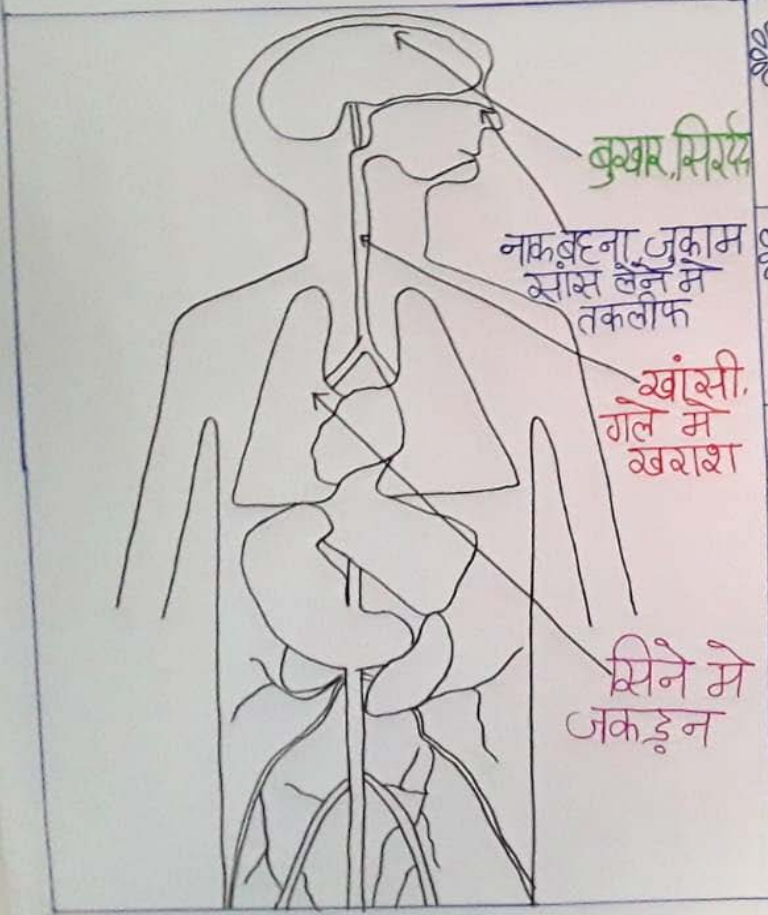 बुखार, सिरदर्द
नाक बहना, जुकाम
सांस लेने मे
तकलीफ
खांसी,
गले मे
खराश
सिने मे
जकड़न